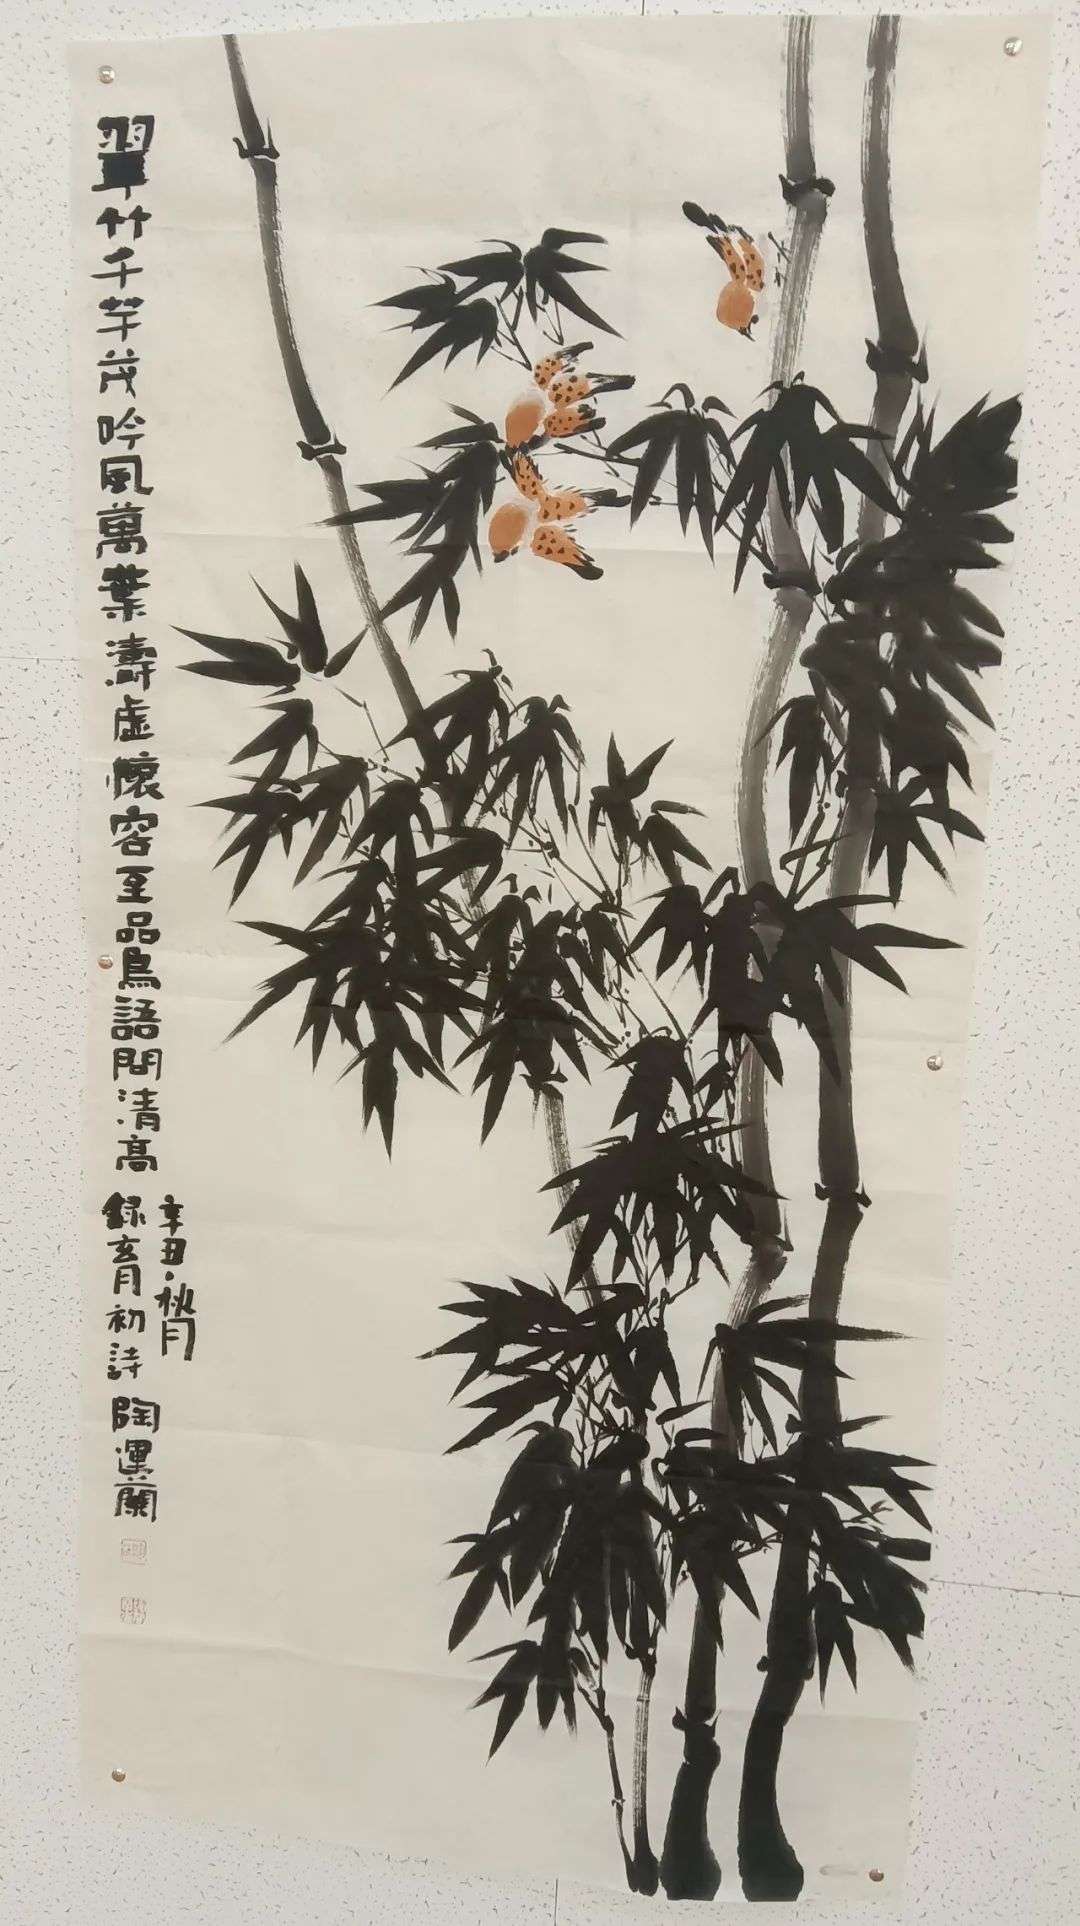 翠竹千芊茂吟風萬葉濤虛懷容至品鳥語問清高
辛丑·秋月
錄玄月初詩 陶運蘭